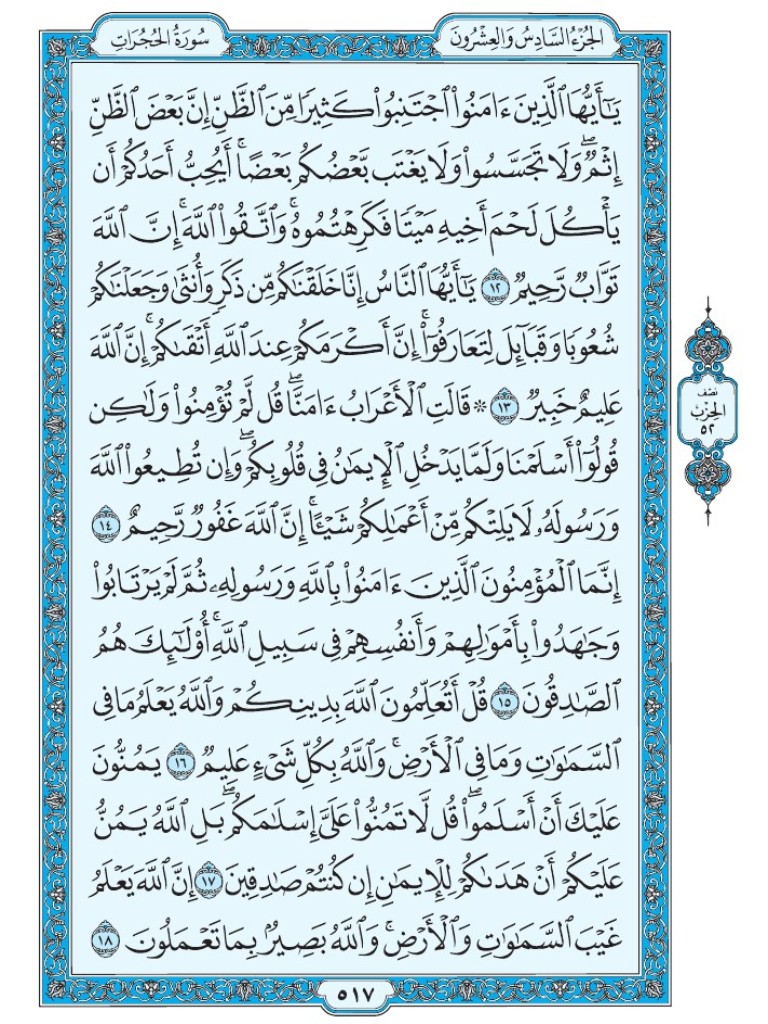 الجُزْءُ السَّادِسُ وَالعِشْرُونَ
سُورَةُ الحُجُرَاتِ
يَٰٓأَيُّهَا ٱلَّذِينَ ءَامَنُوا۟ ٱجْتَنِبُوا۟ كَثِيرًا مِّنَ ٱلظَّنِّ إِنَّ بَعْضَ ٱلظَّنِّ
إِثْمٌ ۖ وَلَا تَجَسَّسُوا۟ وَلَا يَغْتَب بَّعْضُكُم بَعْضًا ۚ أَيُحِبُّ أَحَدُكُمْ أَن
يَأْكُلَ لَحْمَ أَخِيهِ مَيْتًا فَكَرِهْتُمُوهُ ۚ وَٱتَّقُوا۟ ٱللَّهَ ۚ إِنَّ ٱللَّهَ
تَوَّابٌ رَّحِيمٌ ١٢ يَٰٓأَيُّهَا ٱلنَّاسُ إِنَّا خَلَقْنَٰكُم مِّن ذَكَرٍ وَأُنثَىٰ وَجَعَلْنَٰكُمْ
شُعُوبًا وَقَبَآئِلَ لِتَعَارَفُوٓا۟ ۚ إِنَّ أَكْرَمَكُمْ عِندَ ٱللَّهِ أَتْقَىٰكُمْ ۚ إِنَّ ٱللَّهَ
عَلِيمٌ خَبِيرٌ ١٣ * قَالَتِ ٱلْأَعْرَابُ ءَامَنَّا ۖ قُل لَّمْ تُؤْمِنُوا۟ وَلَٰكِن
قُولُوٓا۟ أَسْلَمْنَا وَلَمَّا يَدْخُلِ ٱلْإِيمَٰنُ فِى قُلُوبِكُمْ ۖ وَإِن تُطِيعُوا۟ ٱللَّهَ
وَرَسُولَهُۥ لَا يَلِتْكُم مِّنْ أَعْمَٰلِكُمْ شَيْـًٔا ۚ إِنَّ ٱللَّهَ غَفُورٌ رَّحِيمٌ ١٤
إِنَّمَا ٱلْمُؤْمِنُونَ ٱلَّذِينَ ءَامَنُوا۟ بِٱللَّهِ وَرَسُولِهِۦ ثُمَّ لَمْ يَرْتَابُوا۟
وَجَٰهَدُوا۟ بِأَمْوَٰلِهِمْ وَأَنفُسِهِمْ فِى سَبِيلِ ٱللَّهِ ۚ أُو۟لَٰٓئِكَ هُمُ
ٱلصَّٰدِقُونَ ١٥ قُلْ أَتُعَلِّمُونَ ٱللَّهَ بِدِينِكُمْ وَٱللَّهُ يَعْلَمُ مَا فِى
ٱلسَّمَٰوَٰتِ وَمَا فِى ٱلْأَرْضِ ۚ وَٱللَّهُ بِكُلِّ شَىْءٍ عَلِيمٌ ١٦ يَمُنُّونَ
عَلَيْكَ أَنْ أَسْلَمُوا۟ ۖ قُل لَّا تَمُنُّوا۟ عَلَىَّ إِسْلَٰمَكُم ۖ بَلِ ٱللَّهُ يَمُنُّ
عَلَيْكُمْ أَنْ هَدَىٰكُمْ لِلْإِيمَٰنِ إِن كُنتُمْ صَٰدِقِينَ ١٧ إِنَّ ٱللَّهَ يَعْلَمُ
غَيْبَ ٱلسَّمَٰوَٰتِ وَٱلْأَرْضِ ۚ وَٱللَّهُ بَصِيرٌۢ بِمَا تَعْمَلُونَ ١٨
نصف
الحزب
٥٢
٥١٧